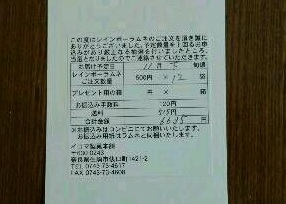 この度はレインボーラムネのご注文を頂き誠に
ありがとうございました。予定数量を上回るお申
込みがあり厳正なる抽選を行いましたところ、
当選となりましたのでご連絡させていただきます。
お届け予定日 11月 旬頃
レインボーラムネ
ご注文数量 500円 × 12 袋
プレゼント用の箱 円 × 箱
お振込み手数料 120円
送料 515円
合計金額 6635 円
※お振込みはコンビニにてお願いします。
お振込み用紙はラムネと同封いたします。
イコマ製菓本舗
〒630-0243
奈良県生駒市俵口町1421-2
TEL 0743-73-4617
FAX 0743-73-4608